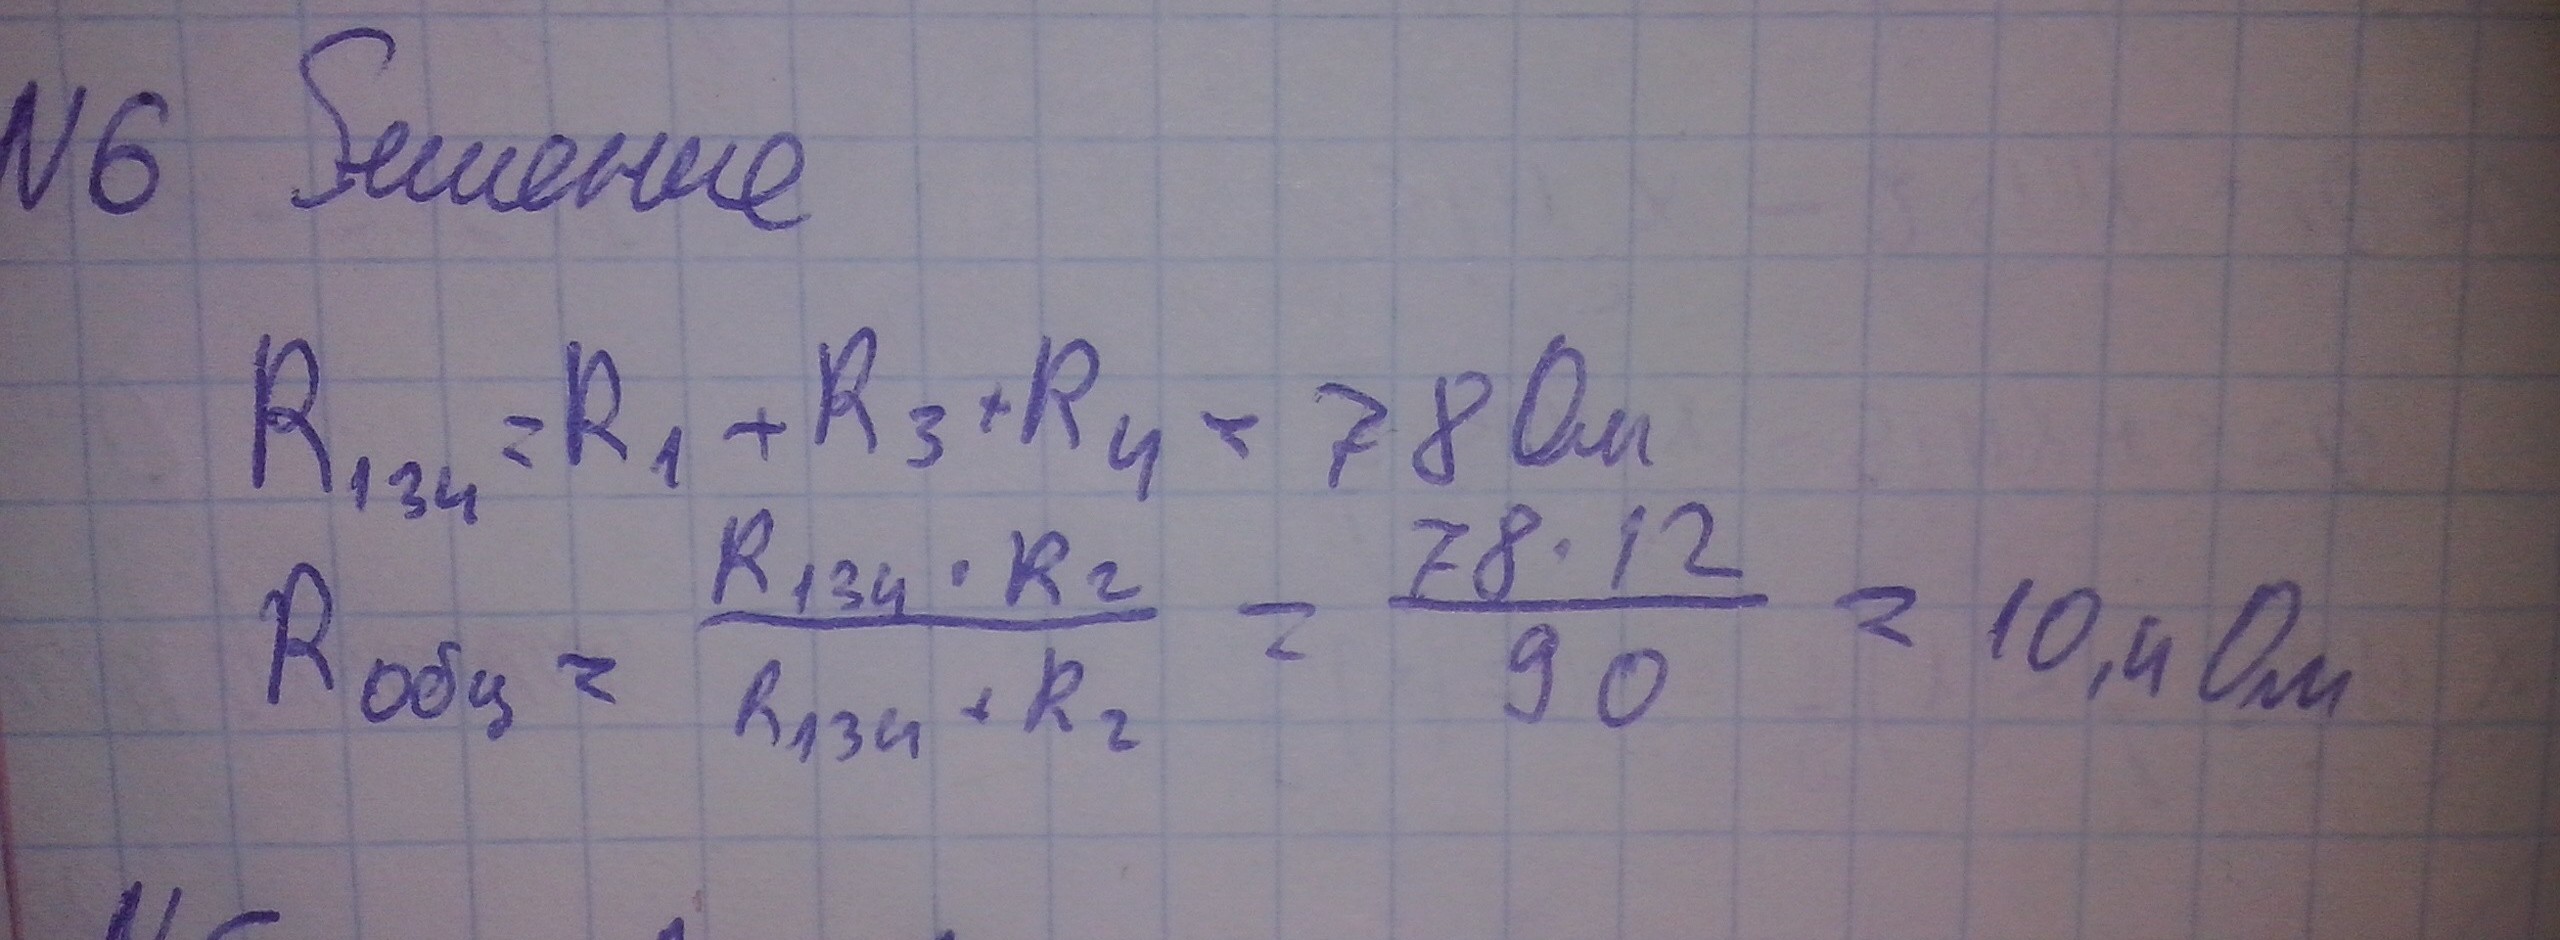 N6 Решение
R₁₃₄ = R₁ + R₃ + R₄ = 78 Ом
Rобщ = (R₁₃₄ · R₂)/(R₁₃₄ + R₂) = (78 · 12)/90 = 10,4 Ом